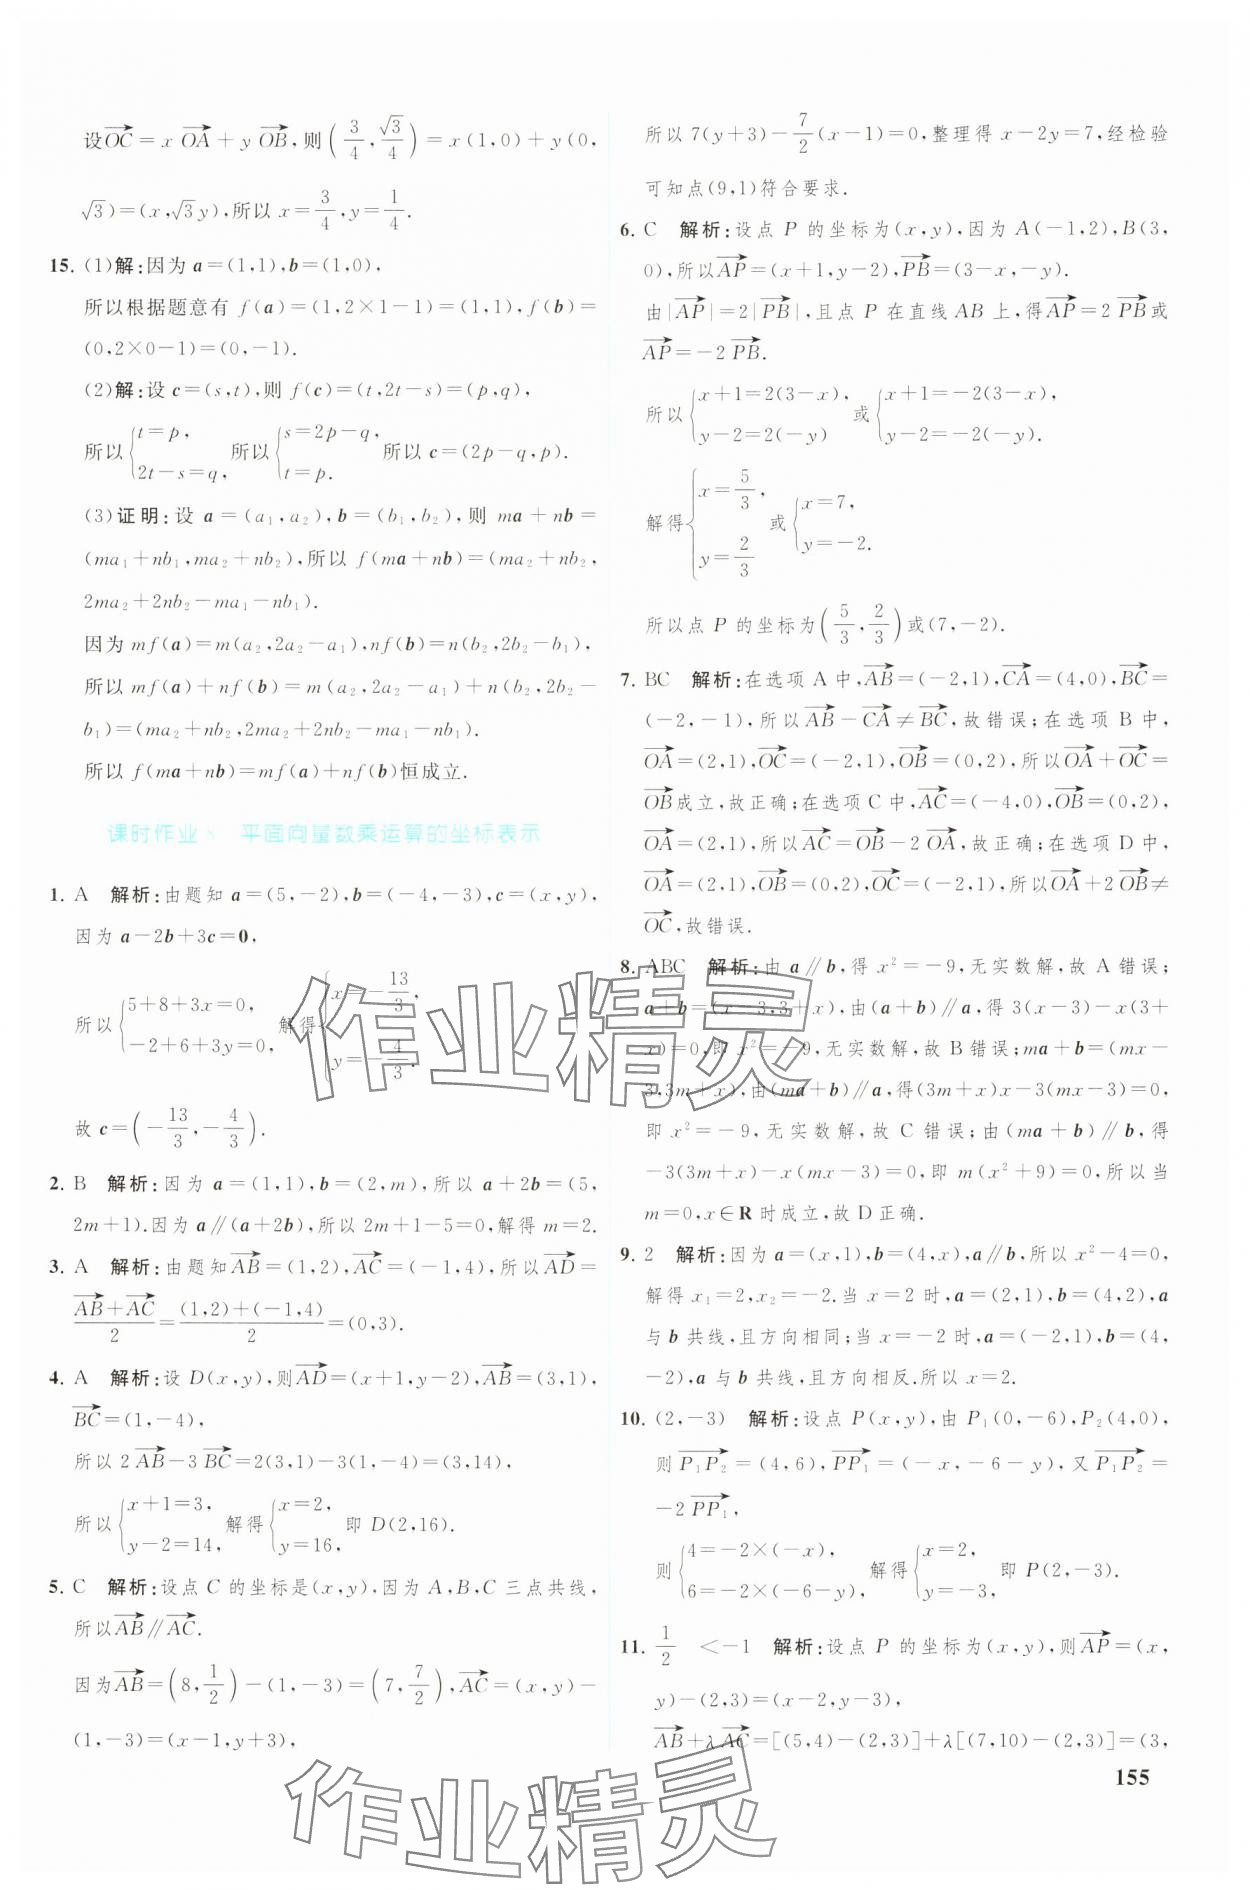 设$\overrightarrow{OC}=x\overrightarrow{OA}+y\overrightarrow{OB}$,则$\left(\frac{3}{4},\frac{\sqrt{3}}{4}\right)=x(1,0)+y(0,$
$\sqrt{3})=(x,\sqrt{3}y)$,所以$x=\frac{3}{4},y=\frac{1}{4}$.
15. (1)解:因为a=(1,1),b=(1,0),
所以根据题意有 f(a)=(1,2×1-1)=(1,1),f(b)=
(0,2×0-1)=(0,-1).
(2)解:设 c=(s,t),则 f(c)=(t,2t-s)=(p,q),
所以$\begin{cases}t=p,\\2t-s=q,\end{cases}$所以$\begin{cases}s=2p-q,\\t=p.\end{cases}$所以 c=(2p-q,p).
(3)证明:设 a=(a₁,a₂),b=(b₁,b₂),则 ma+nb=
(ma₁+nb₁,ma₂+nb₂),所以 f(ma+nb)=(ma₂+nb₂,
2ma₂+2nb₂-ma₁-nb₁).
因为 mf(a)=m(a₂,2a₂-a₁),nf(b)=n(b₂,2b₂-b₁),
所以 mf(a)+nf(b)=m(a₂,2a₂-a₁)+n(b₂,2b₂-
b₁)=(ma₂+nb₂,2ma₂+2nb₂-ma₁-nb₁).
所以 f(ma+nb)=mf(a)+nf(b)恒成立.
课时作业 平面向量数乘运算的坐标表示
1. A 解析:由题知 a=(5,-2),b=(-4,-3),c=(x,y),
因为 a-2b+3c=0,
所以$\begin{cases}5+8+3x=0,\\-2+6+3y=0,\end{cases}$解得$\begin{cases}x=-\frac{13}{3},\\y=-\frac{4}{3}.\end{cases}$
故 c=$\left(-\frac{13}{3},-\frac{4}{3}\right)$.
2. B 解析:因为 a=(1,1),b=(2,m),所以 a+2b=(5,
2m+1).因为 a∥(a+2b),所以 2m+1-5=0,解得 m=2.
3. A 解析:由题知$\overrightarrow{AB}$=(1,2),$\overrightarrow{AC}$=(-1,4),所以$\overrightarrow{AD}$=
$\frac{\overrightarrow{AB}+\overrightarrow{AC}}{2}=\frac{(1,2)+(-1,4)}{2}=(0,3)$.
4. A 解析:设 D(x,y),则$\overrightarrow{AD}$=(x+1,y-2),$\overrightarrow{AB}$=(3,1),
$\overrightarrow{BC}$=(1,-4),
所以 2$\overrightarrow{AB}$-3$\overrightarrow{BC}$=2(3,1)-3(1,-4)=(3,14),
所以$\begin{cases}x+1=3,\\y-2=14,\end{cases}$解得$\begin{cases}x=2,\\y=16,\end{cases}$即 D(2,16).
5. C 解析:设点 C 的坐标是(x,y),因为 A,B,C 三点共线,
所以$\overrightarrow{AB}$∥$\overrightarrow{AC}$.
因为$\overrightarrow{AB}=\left(8,\frac{1}{2}\right)-(1,-3)=\left(7,\frac{7}{2}\right),\overrightarrow{AC}=(x,y)-$
(1,-3)=(x-1,y+3),
所以 7(y+3)-$\frac{7}{2}$(x-1)=0,整理得 x-2y=7,经检验
可知点(9,1)符合要求.
6. C 解析:设点 P 的坐标为(x,y),因为 A(-1,2),B(3,
0),所以$\overrightarrow{AP}$=(x+1,y-2),$\overrightarrow{PB}$=(3-x,-y).
由|$\overrightarrow{AP}$|=2|$\overrightarrow{PB}$|,且点 P 在直线 AB 上,得$\overrightarrow{AP}$=2$\overrightarrow{PB}$或
$\overrightarrow{AP}$=-2$\overrightarrow{PB}$.
所以$\begin{cases}x+1=2(3-x),\\y-2=2(-y)\end{cases}$或$\begin{cases}x+1=-2(3-x),\\y-2=-2(-y).\end{cases}$
解得$\begin{cases}x=\frac{5}{3},\\y=\frac{2}{3}\end{cases}$或$\begin{cases}x=7,\\y=-2.\end{cases}$
所以点 P 的坐标为$\left(\frac{5}{3},\frac{2}{3}\right)$或(7,-2).
7. BC 解析:在选项 A 中,$\overrightarrow{AB}$=(-2,1),$\overrightarrow{CA}$=(4,0),$\overrightarrow{BC}$=
(-2,-1),所以$\overrightarrow{AB}$-$\overrightarrow{CA}$≠$\overrightarrow{BC}$,故错误;在选项 B 中,
$\overrightarrow{OA}$=(2,1),$\overrightarrow{OC}$=(-2,1),$\overrightarrow{OB}$=(0,2),所以$\overrightarrow{OA}$+$\overrightarrow{OC}$=
$\overrightarrow{OB}$成立,故正确;在选项 C 中,$\overrightarrow{AC}$=(-4,0),$\overrightarrow{OB}$=(0,2),
$\overrightarrow{OA}$=(2,1),所以$\overrightarrow{AC}$=$\overrightarrow{OB}$-2$\overrightarrow{OA}$,故正确;在选项 D 中,
$\overrightarrow{OA}$=(2,1),$\overrightarrow{OB}$=(0,2),$\overrightarrow{OC}$=(-2,1),所以$\overrightarrow{OA}$+2$\overrightarrow{OB}$≠
$\overrightarrow{OC}$,故错误.
8. ABC 解析:由 a∥b,得 x²=-9,无实数解,故 A 错误;
a+b=(x-3,3+x),由(a+b)∥a,得 3(x-3)-x(3+
x)=0,即 x²=-9,无实数解,故 B 错误;ma+b=(mx-
3,3m+x),由(ma+b)∥a,得(3m+x)x-3(mx-3)=0,
即 x²=-9,无实数解,故 C 错误;由(ma+b)∥b,得
-3(3m+x)-x(mx-3)=0,即 m(x²+9)=0,所以当
m=0,x∈R 时成立,故 D 正确.
9. 2 解析:因为 a=(x,1),b=(4,x),a∥b,所以 x²-4=0,
解得 x₁=2,x₂=-2.当 x=2 时,a=(2,1),b=(4,2),a
与 b 共线,且方向相同;当 x=-2 时,a=(-2,1),b=(4,
-2),a 与 b 共线,且方向相反.所以 x=2.
10. (2,-3) 解析:设点 P(x,y),由 P₁(0,-6),P₂(4,0),
则$\overrightarrow{P_1P_2}$=(4,6),$\overrightarrow{PP_1}$=(-x,-6-y),又$\overrightarrow{P_1P_2}$=
-2$\overrightarrow{PP_1}$,
则$\begin{cases}4=-2×(-x),\\6=-2×(-6-y),\end{cases}$解得$\begin{cases}x=2,\\y=-3,\end{cases}$即 P(2,-3).
11. $\frac{1}{2}$ <-1 解析:设点 P 的坐标为(x,y),则$\overrightarrow{AP}$=(x,
y)-(2,3)=(x-2,y-3),
$\overrightarrow{AB}$+λ$\overrightarrow{AC}$=[(5,4)-(2,3)]+λ[(7,10)-(2,3)]=(3,
155
作业精灵
作业精灵